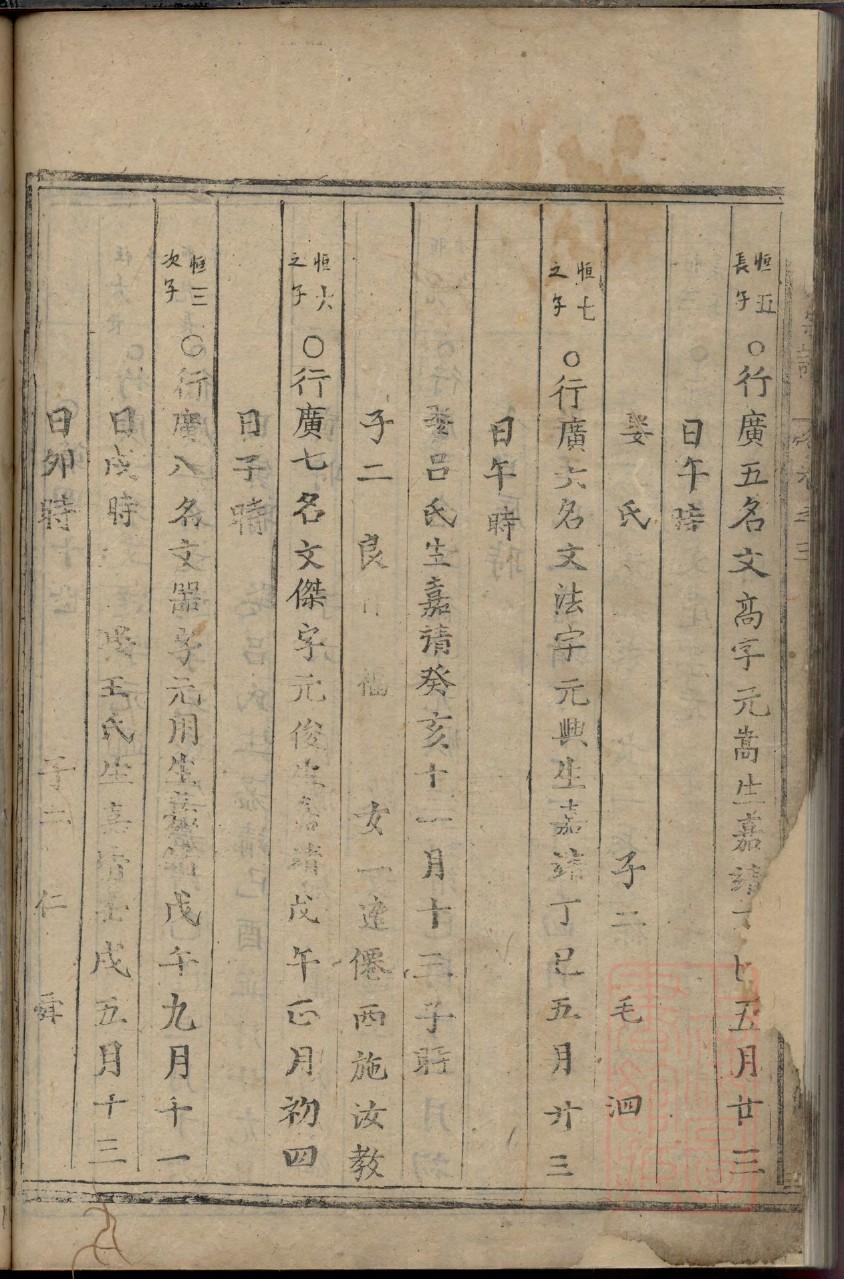 恒五
長子
○行廣五名文高字元嵩生嘉靖丁巳五月廿三
日午時
娶氏 子二 毛 泗
恒七
之子
○行廣六名文法字元興生嘉靖丁巳五月廿三
日午時
娶呂氏生嘉靖癸亥十一月十三子時
子二 良 福 女一達僊西施汝教
恒六
之子
○行廣七名文傑字元俊生嘉靖戊午正月初四
日子時
恒三
次子
○行廣八名文器字元用生嘉靖戊午九月十一
日戌時 娶王氏生嘉靖壬戌五月十三
日卯時 子二 仁 舜